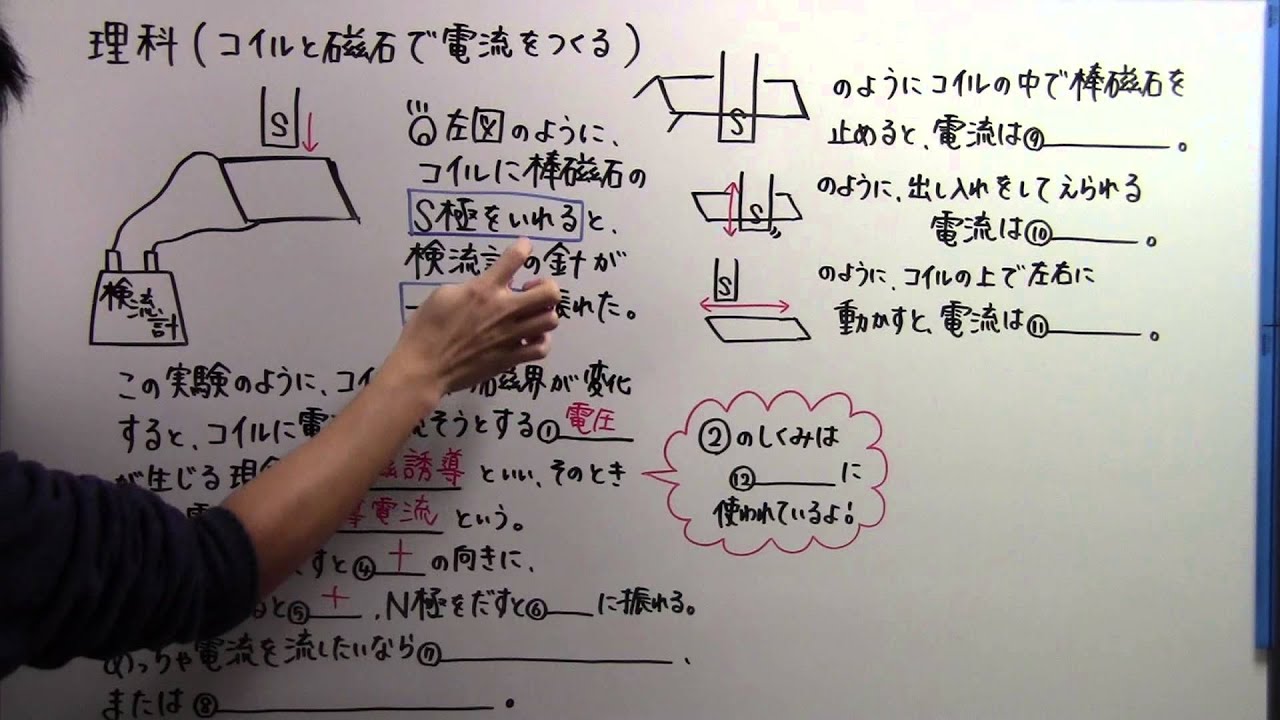 理科(コイルと磁石で電流をつくる)
S
左図のように、
コイルに棒磁石の
S極をいれると、
検流計の針が
振れた。
検流計
この実験のように、コイ 磁界が変化
すると、コイルに電 そうとする①電圧
が生じる現 誘導といい、そのとき
電流という。
すと④+の向きに、
ると⑤+、N極をだすと⑥__に振れる。
めっちゃ電流を流したいなら⑦______、
または⑧______。
S
のようにコイルの中で棒磁石を
止めると、電流は⑨______。
S
のように、出し入れをしてえられる
電流は⑩______。
S
のように、コイルの上で左右に
動かすと、電流は⑪______。
②のしくみは
⑫______に
使われているよ!